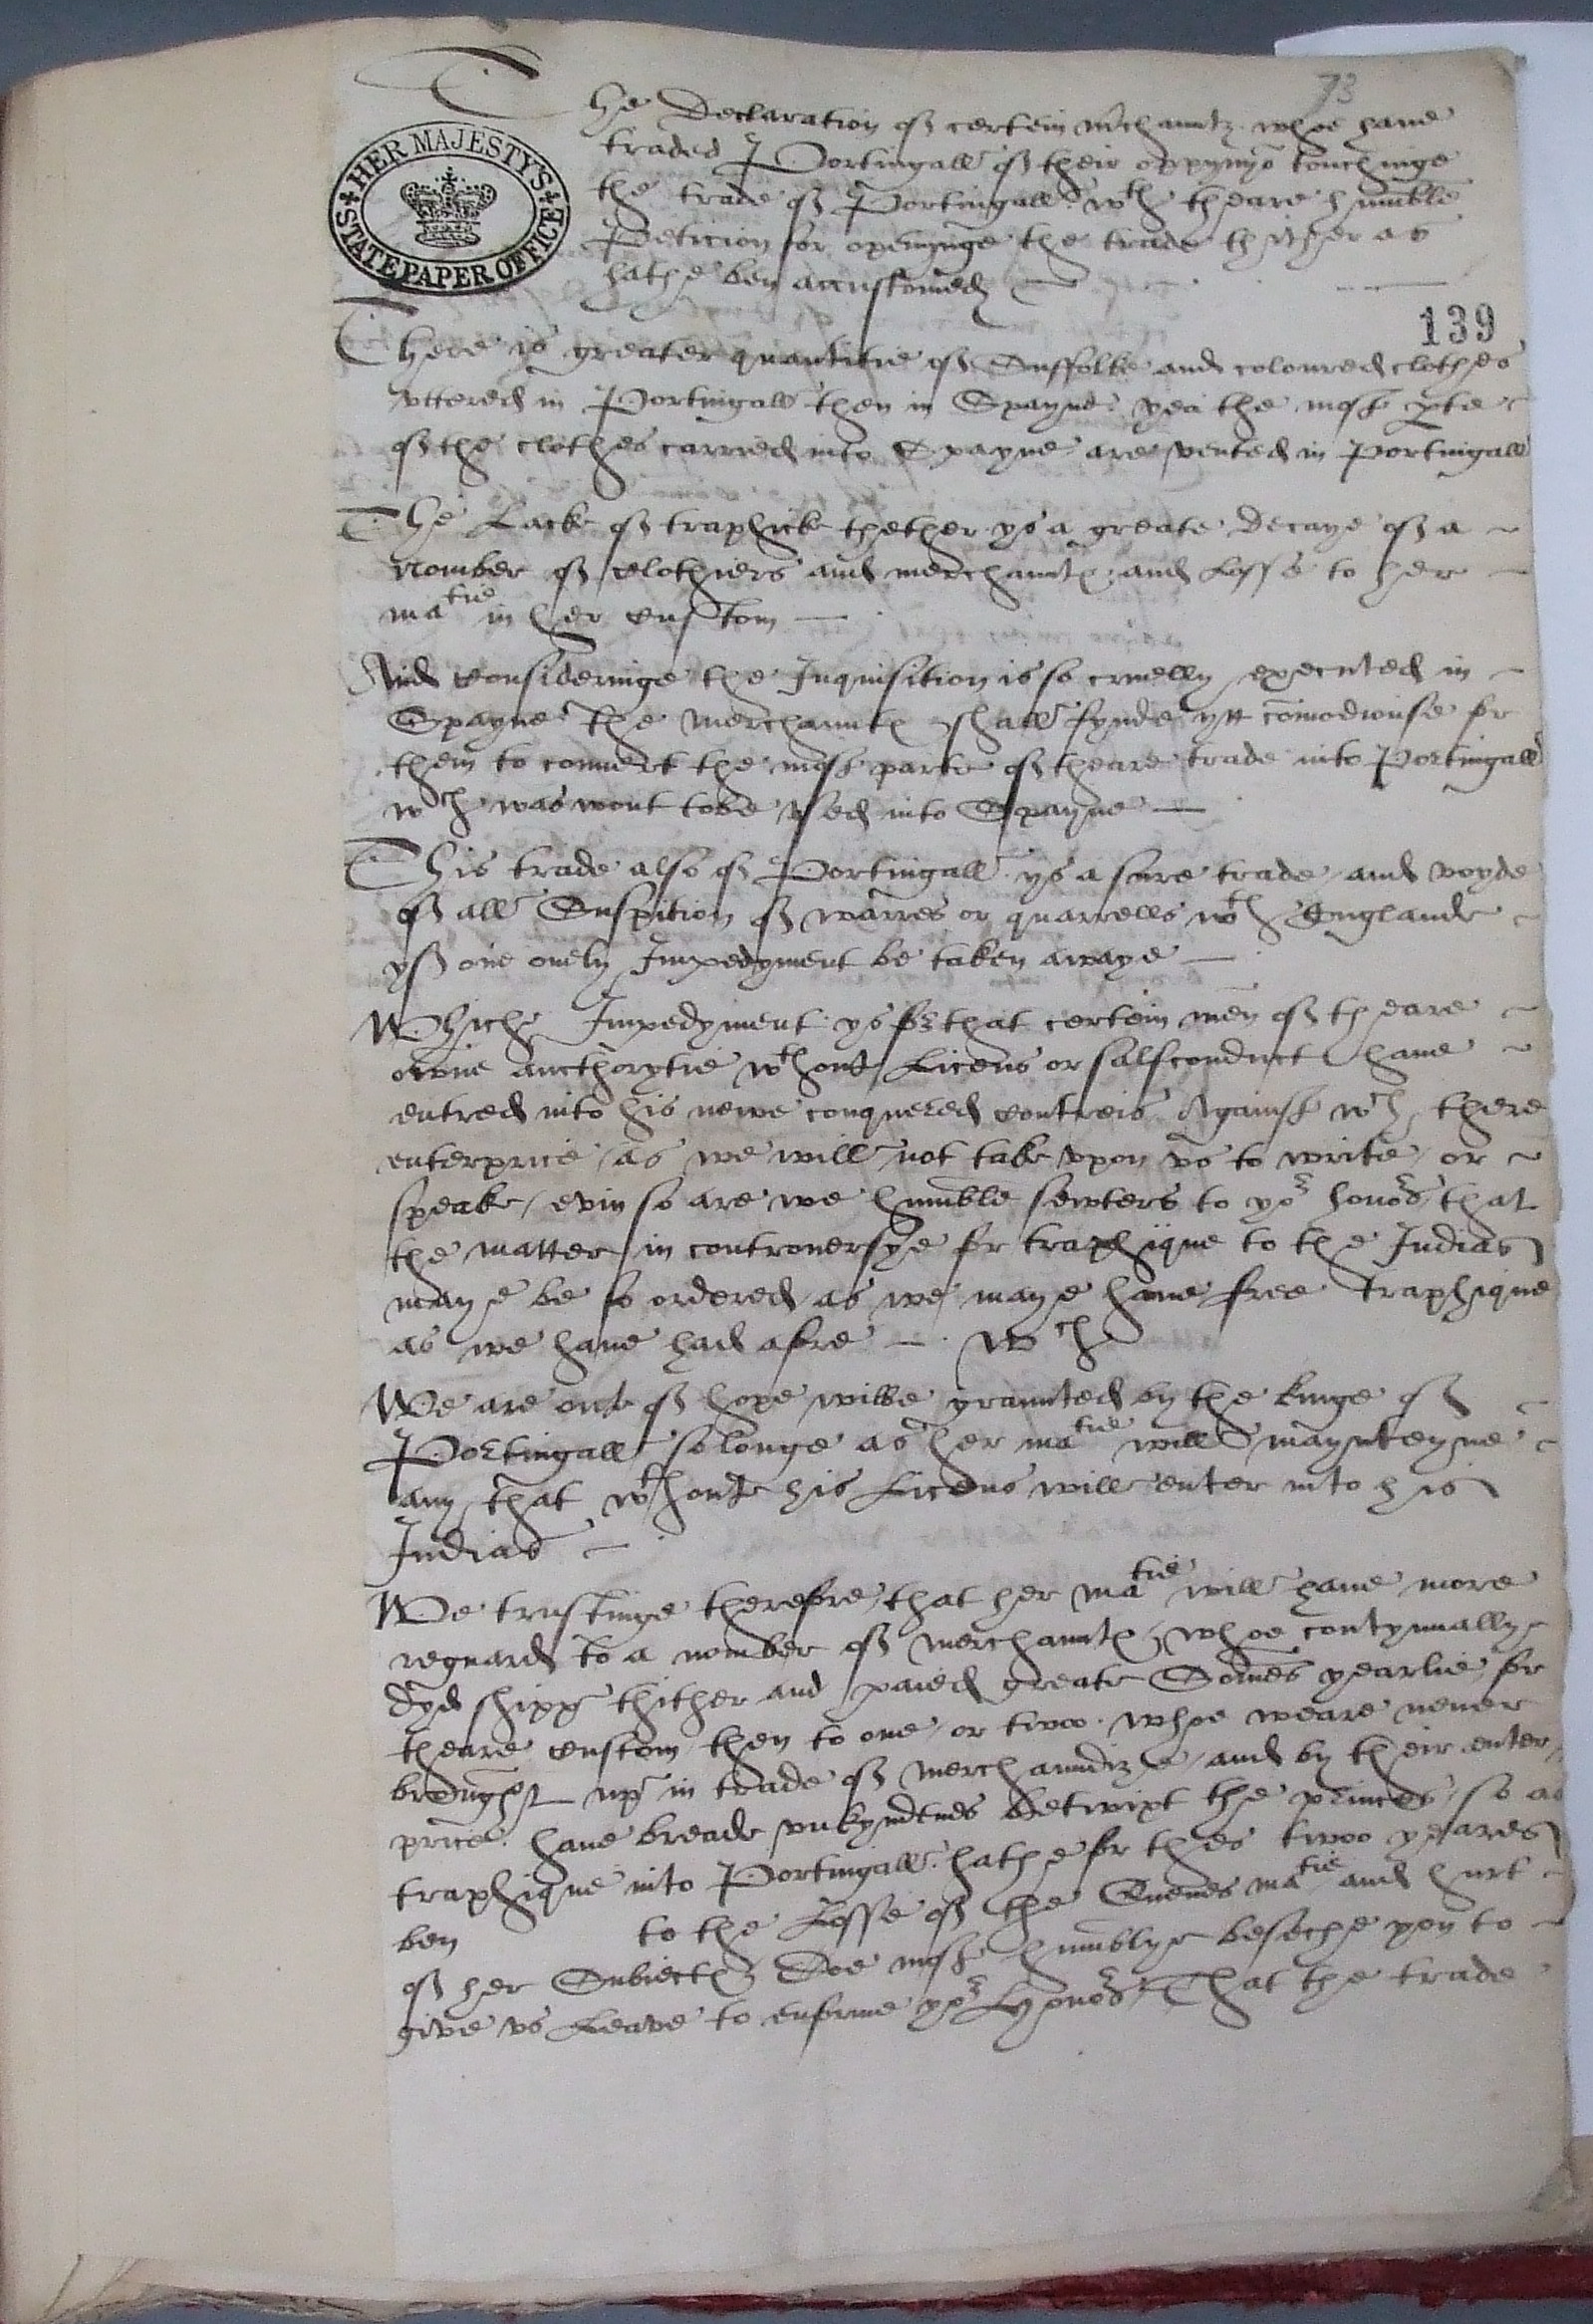 73
HER MAJESTY'S STATE PAPER OFFICE
The Declaration of certein mchauntz whoe haue
traded Portingall of their oppynyo touchinge
the trade of Portingall wth theare humble
Peticion for openynge the trade thither as
hathe ben accustomed
139
There is greater quantitie of Suffolke and coloured clothes
vttered in Portingall then in Spayne yea the most pte
of the clothes carried into Spayne are vented in Portingall
The Lack of traphick thether ys a greate decaye of a
nomber of clothiers and merchauntz and Losse to her
matie in her custom
And consideringe the Inquisition is so cruelly executed in
Spayne the merchauntz shall fynde ytt comodiouse for
them to convert the most parte of theare trade into Portingall
wch was wont tobe vsed into Spayne
This trade also of Portingall ys a sure trade and voyde
of all Suspition of warres or quarrells wth Englande
yf one onely Impedyment be taken awaye
Whiche Impedyment ys for that certein men of theare
owne aucthorytie wthout Licens or salfconduct haue
entred into his newe conquered contreis Against wch there
enterprice as we will not take vpon vs to write or
speake / evin so are we humble sewters to yor honors that
the matter in controuersye for traphique to the Indias
maye be so ordered as we maye haue free traphique
as we haue had afore wch
We are out of hope wilbe graunted by the kinge of
Portingall so longe as her matie will maynteyne
any that wthout his Licens will enter into his
Indias
We trustinge therefore that her matie will haue more
reguard to a nomber of merchauntz whoe contynually
dyd shipp thither and paied greate Somes yearlie for
theare custom then to one or twoo whoe weare neuer
brought up in trade of merchaundize and by their enter
price haue breade vnkyndnes betwixt the princes so as
traphique into Portingall hathe for thes twoo yeares
ben to the Losse of the Quenes matie and hurt
of her Subiectz Doe most humblye beseche you to
give vs Leave to enforme yor Honors That the trade